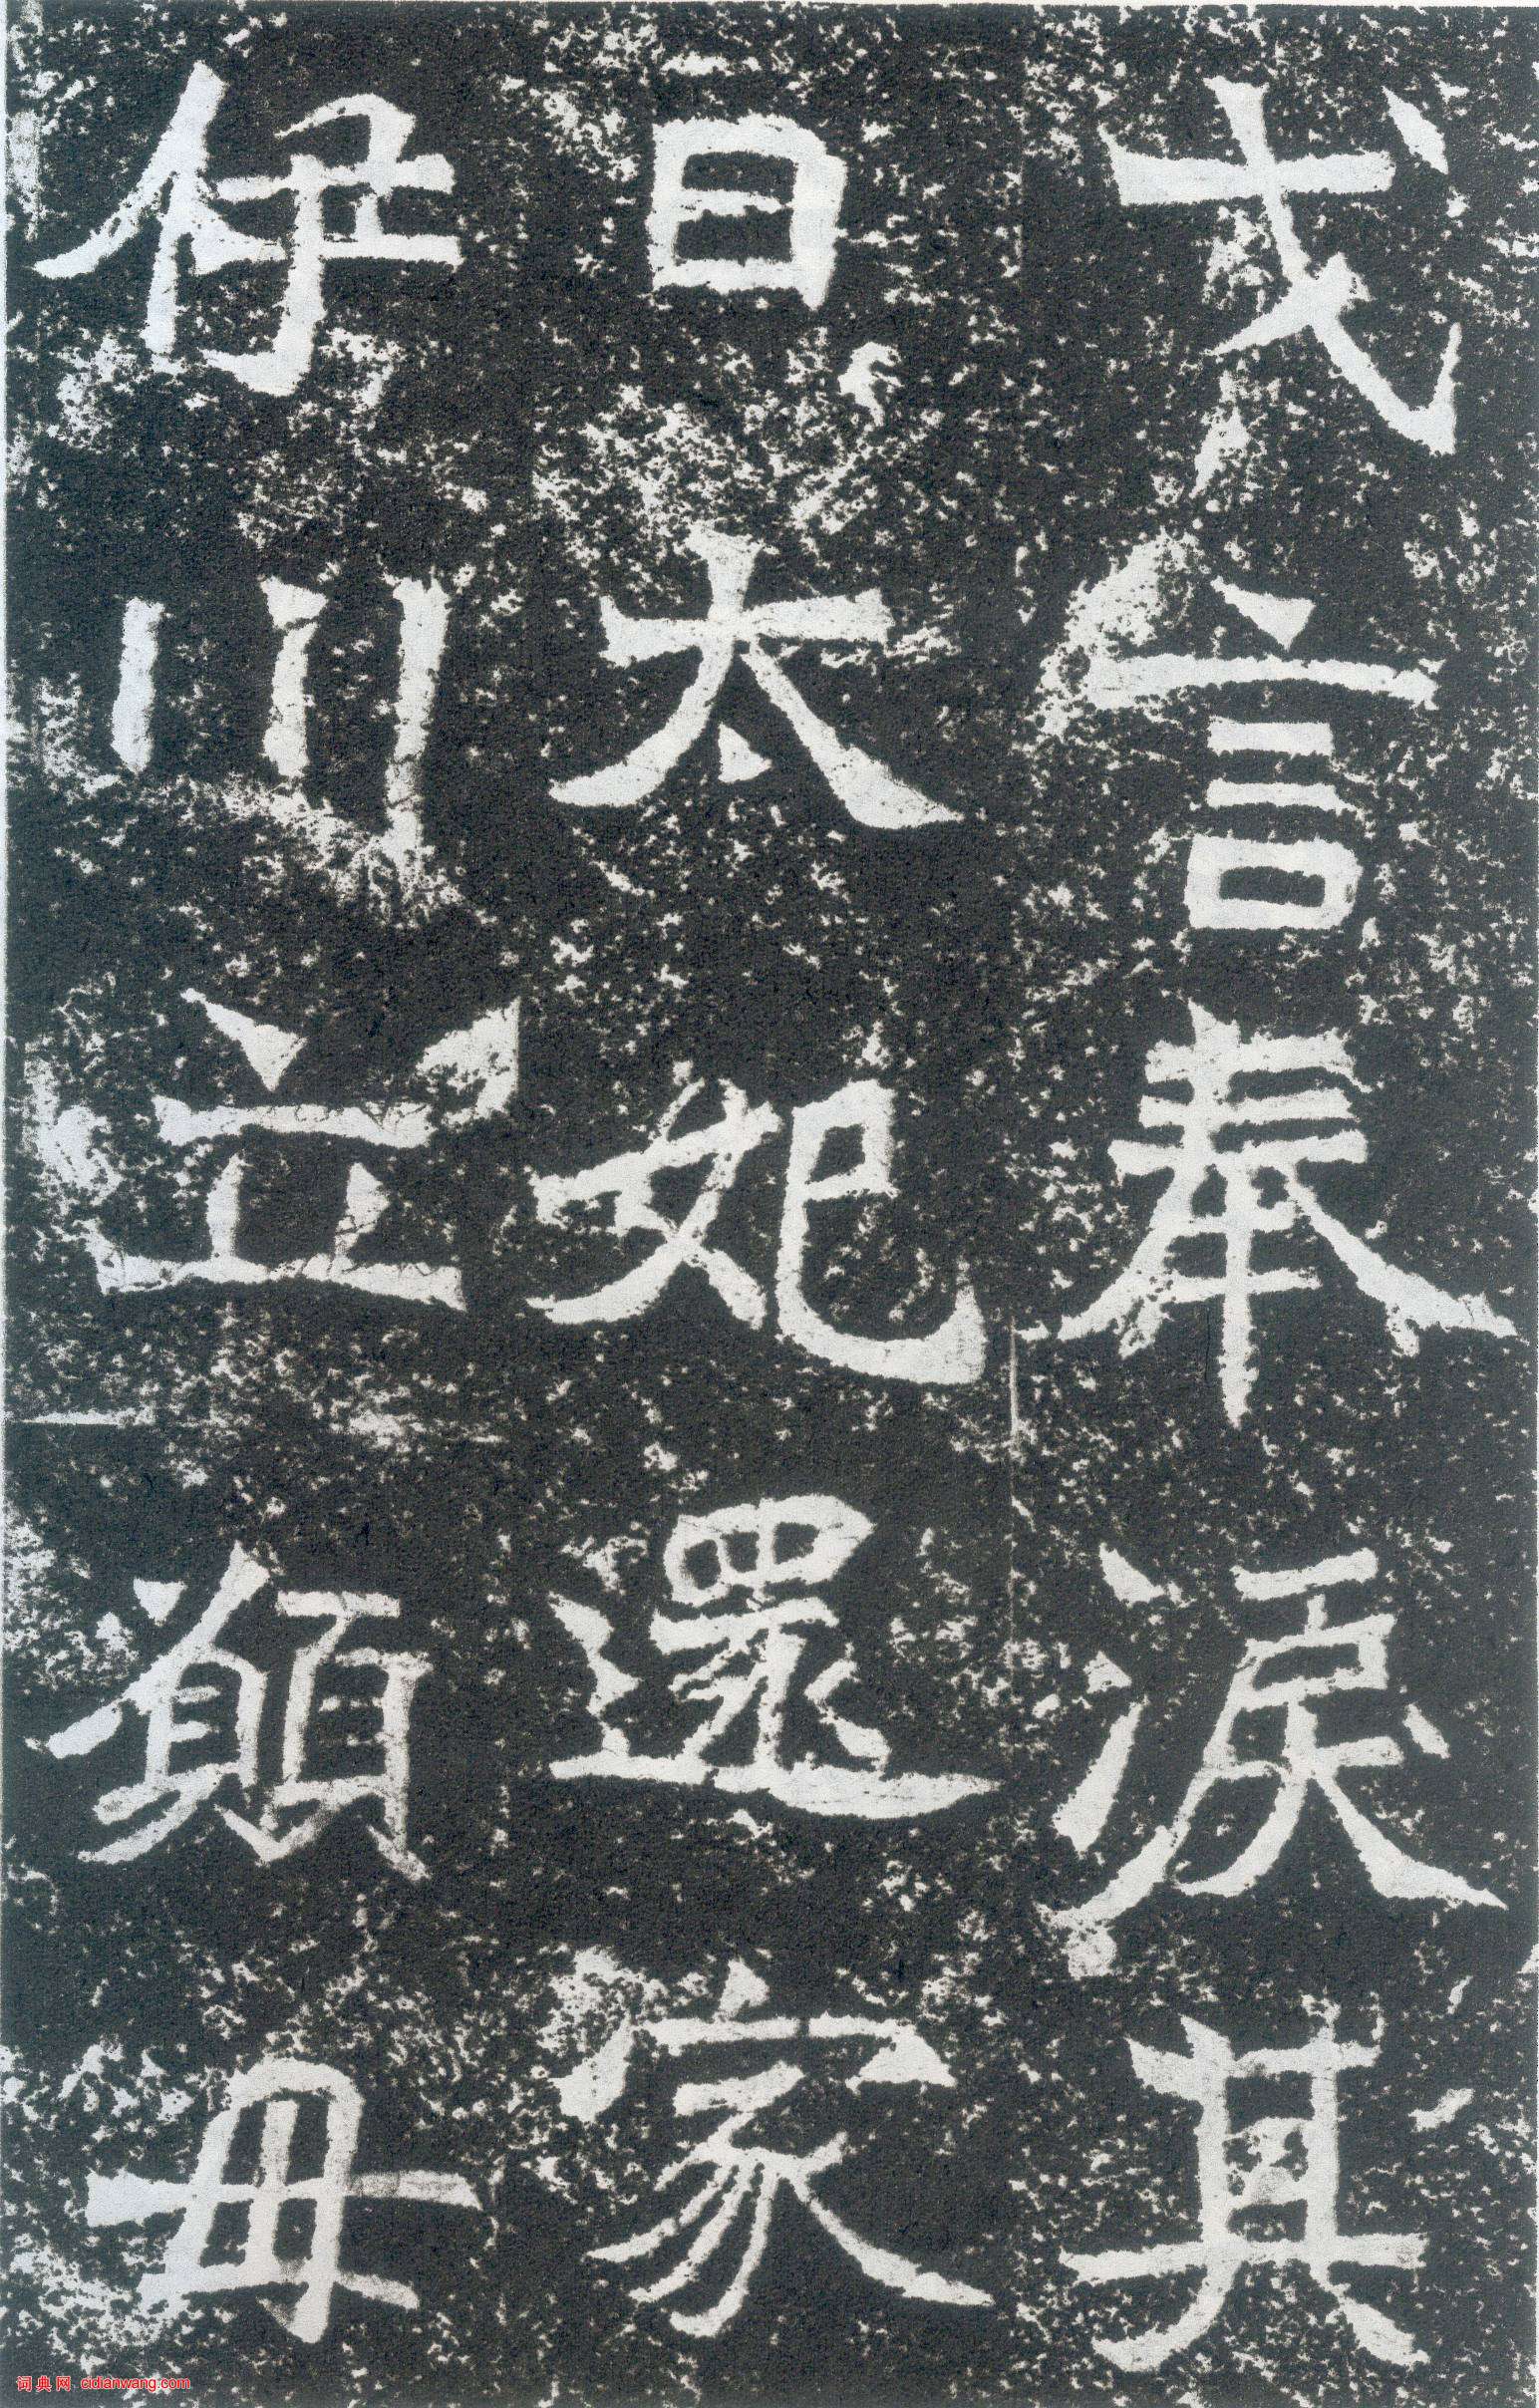 戈言奉淚其
日太妃還家
伊川立願母
词典网 cidianwang.com